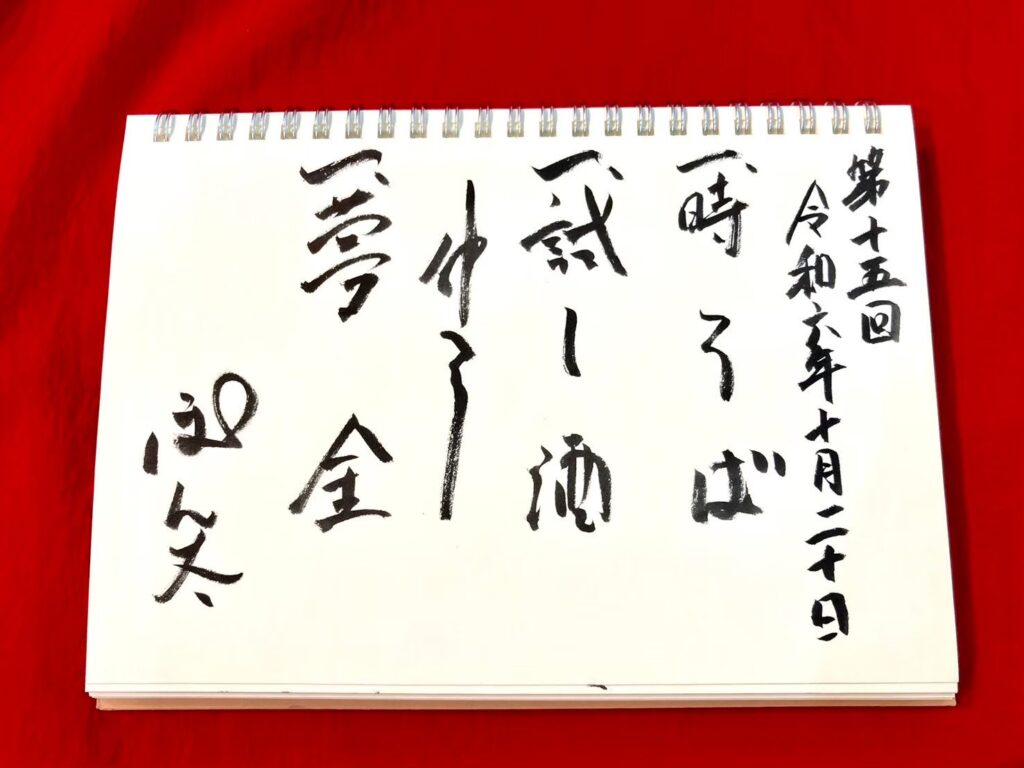 第十五回
令和六年十月二十日
一、時そば
一、試し酒
仲入り
一、夢金